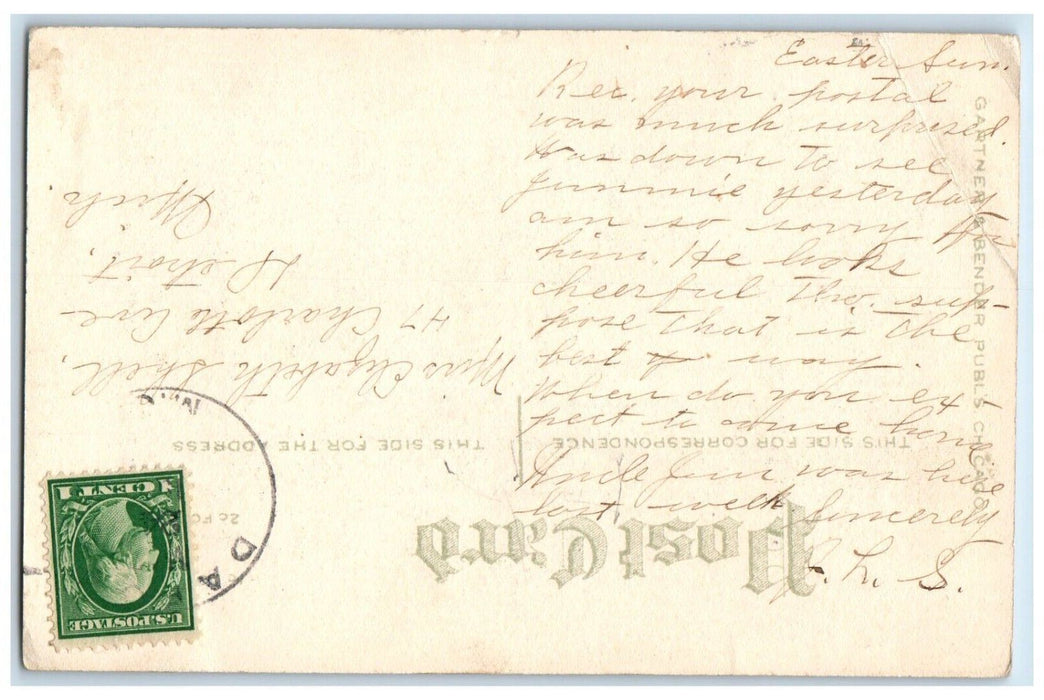 Easter Sun.
Rec. your postal
was much surprised
Was down to see
Jimmie yesterday
am so sorry for
him. He looks
cheerful tho. sup-
pose that is the
best way.
When do you ex
pect to come home
Uncle Jim was here
last week Sincerely
L. S.
Miss Elizabeth Snell,
47 Charlotte Ave
Detroit,
Mich.
Post Card
THIS SIDE FOR CORRESPONDENCE
THIS SIDE FOR THE ADDRESS
GARTNER & BENDER PUBLS CHICAGO
U.S. POSTAGE
1 CENT 1
DA